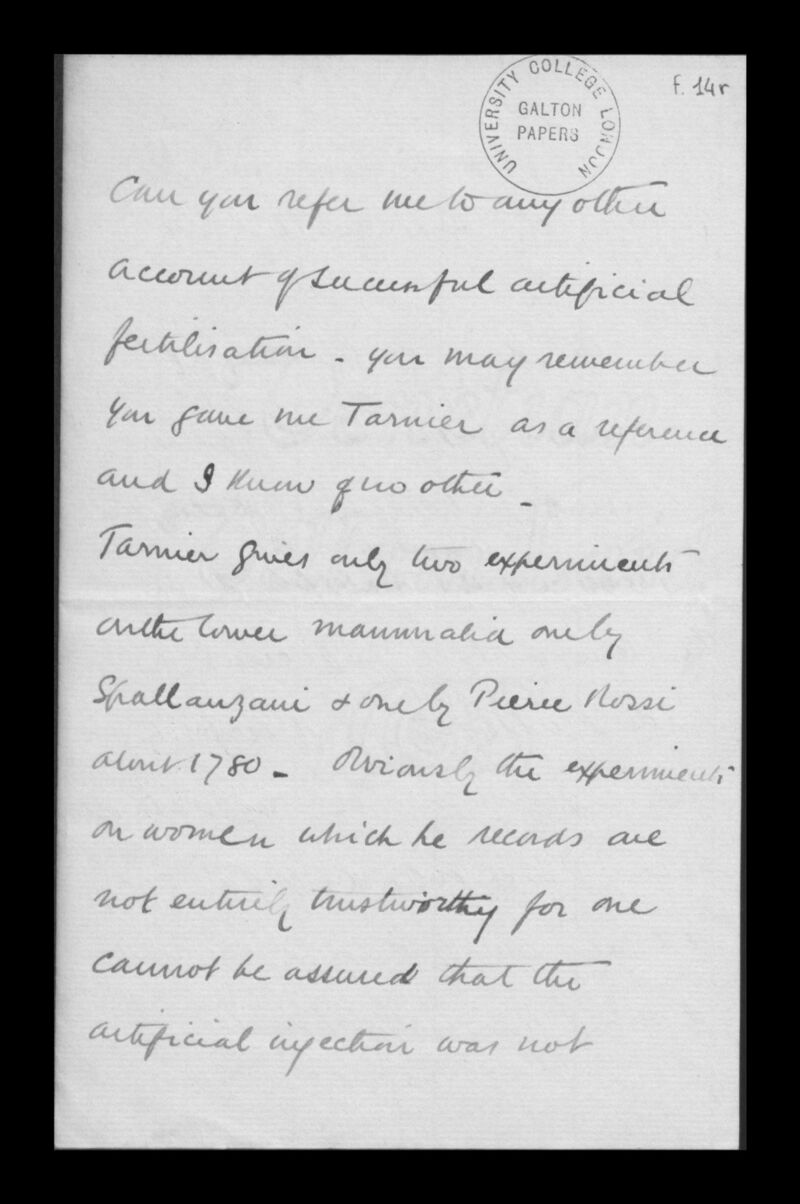 UNIVERSITY COLLEGE LONDON
GALTON
PAPERS
f. 14r
Can you refer me to any other
account of successful artificial
fertilisation - you may remember
you gave me Tarnier as a reference
and I know of no other -
Tarnier gives only two experiments
on the lower mammalia one by
Spallanzani & one by Pierre Rossi
about 1780 - Obviously the experiments
on women which he records are
not entirely trustworthy for one
cannot be assured that the
artificial injection was not